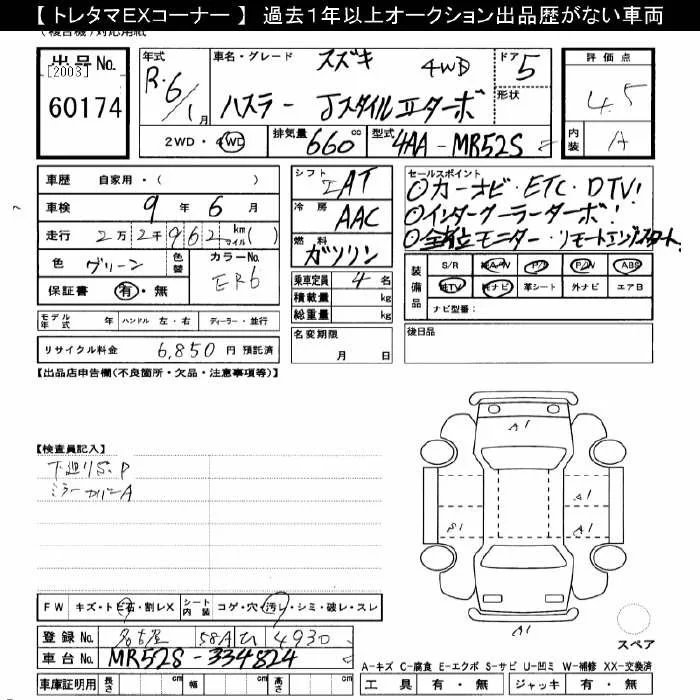 【 トレタマEXコーナー 】 過去1年以上オークション出品歴がない車両
出品No.
[2003]
60174
年式 R.6/1月
車名・グレード スズキ 4WD
ハスラー JスタイルⅡターボ
ドア 5
形状
評価点 4.5
内装 A
2WD・4WD 排気量 660cc 型式 4AA-MR52S
車歴 自家用・( )
車検 9年 6月
走行 2万2千962 km マイル ( )
色 グリーン 色替 カラーNo. ER6
保証書 有・無
シフト IAT
冷房 AAC
燃料 ガソリン
乗車定員 4名
積載量 kg
総重量 kg
セールスポイント
◎カーナビ・ETC・DTV!
◎インタークーラーターボ!
◎全方位モニター・リモートエンジンスタート
装備品 S/R 純A/W P/S P/W ABS
純TV 純ナビ 革シート 外ナビ エアB
ナビ型番:
モデル年式 年 ハンドル 左・右 ディーラー・並行
名変期限 月 日
後日品
リサイクル料金 6,850円 預託済
【出品店申告欄(不良箇所・欠品・注意事項等)】
A1
【検査員記入】
下廻りS.P
ミラーカバーA
A1
S1
A1
FW キズ・トビ石・割レX シート内装 コゲ・穴・汚レ・シミ・破レ・スレ
A1
スペア
登録No. 名古屋 58A ひ 4930
車台No. MR52S-334824
A-キズ C-腐食 E-エクボ S-サビ U-凹ミ W-補修 XX-交換済
車庫証明用 長さ cm 幅 cm 高さ cm
工具 有・無 ジャッキ 有・無